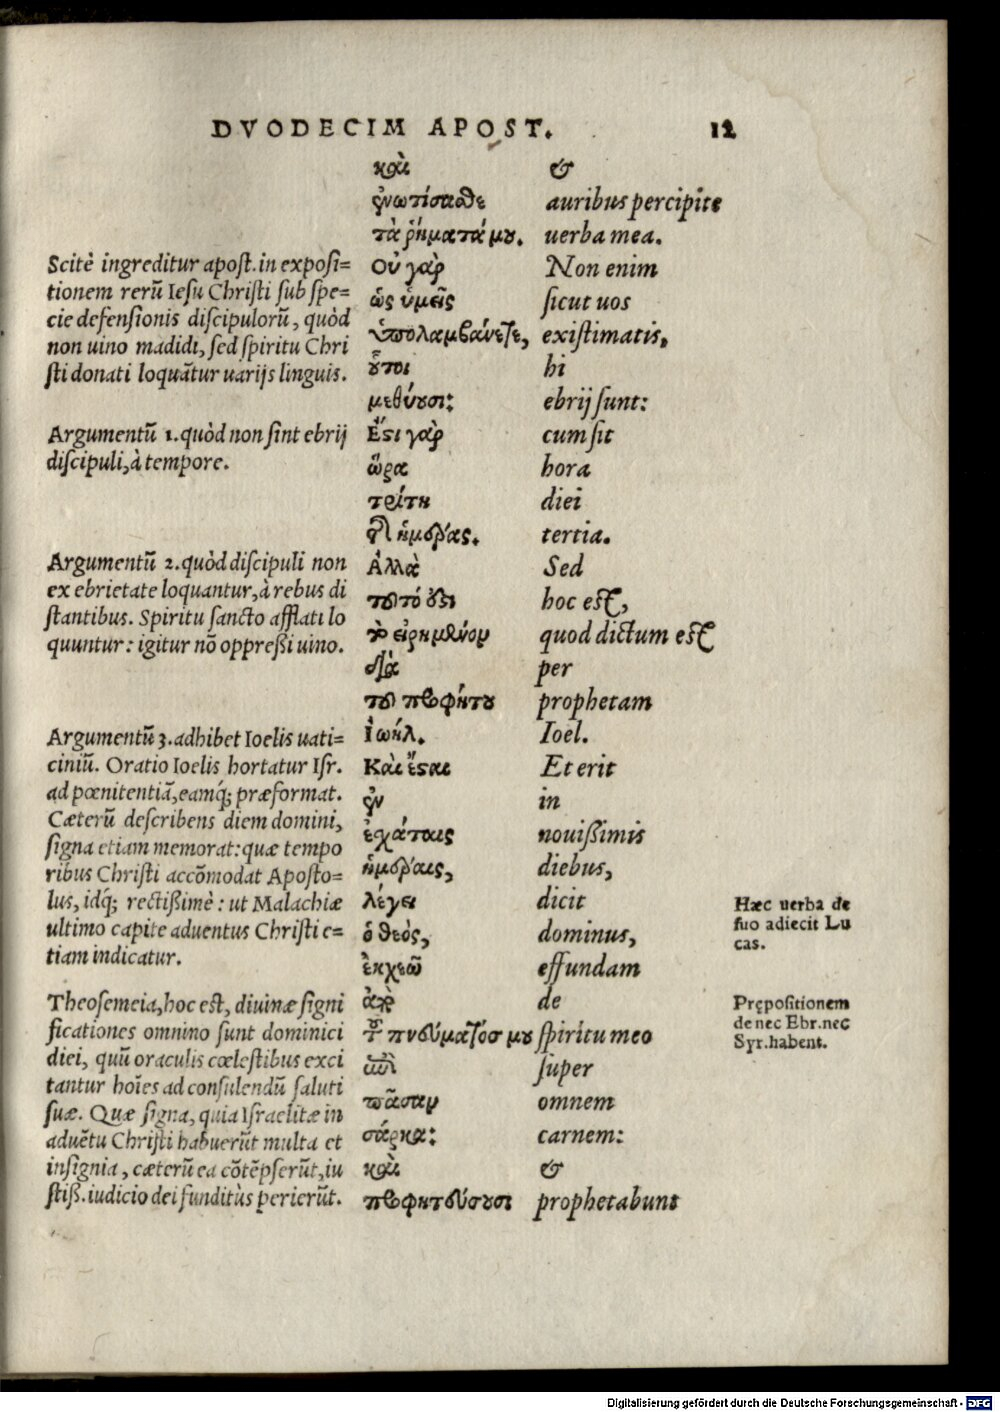 DVODECIM APOST. 12
καὶ &
ἐνωτίσασθε auribus percipite
τὰ ῥήματά μου. uerba mea.
Οὐ γὰρ Non enim
ὡς ὑμεῖς sicut uos
ὑπολαμβάνετε, existimatis,
οὗτοι hi
μεθύουσι: ebrij sunt:
Ἔστι γὰρ cum sit
ὥρα hora
τρίτη diei
τῆς ἡμέρας. tertia.
Ἀλλὰ Sed
τοῦτό ἐστι hoc est,
τὸ εἰρημένον quod dictum est
διὰ per
τοῦ προφήτου prophetam
Ἰωήλ. Ioel.
Καὶ ἔσται Et erit
ἐν in
ἐσχάταις nouißimis
ἡμέραις, diebus,
λέγει dicit
ὁ θεὸς, dominus,
ἐκχεῶ effundam
ἀπὸ de
τοῦ πνεύματός μου spiritu meo
ἐπὶ super
πᾶσαν omnem
σάρκα: carnem:
καὶ &
προφητεύσουσι prophetabunt
Scitè ingreditur apost. in exposi=
tionem rerū Iesu Christi sub spe=
cie defensionis discipulorū, quòd
non uino madidi, sed spiritu Chri
sti donati loquātur uarijs linguis.
Argumentū 1. quòd non sint ebrij
discipuli, à tempore.
Argumentū 2. quòd discipuli non
ex ebrietate loquantur, à rebus di
stantibus. Spiritu sancto afflati lo
quuntur: igitur nō oppreßi uino.
Argumentū 3. adhibet Ioelis uati=
ciniū. Oratio Ioelis hortatur Isr.
ad pœnitentiā, eamq́; præformat.
Cæterū describens diem domini,
signa etiam memorat: quæ tempo
ribus Christi accōmodat Aposto=
lus, idq́; rectißimè: ut Malachiæ
ultimo capite aduentus Christi e=
tiam indicatur.
Theosemeia, hoc est, diuinæ signi
ficationes omnino sunt dominici
diei, quū oraculis cœlestibus exci
tantur hoīes ad consulendū saluti
suæ. Quæ signa, quia Israelitæ in
aduētu Christi habuerūt multa et
insignia, cæterū ea cōtēpserūt, iu
stiß. iudicio dei funditùs perierūt.
Hæc uerba de
suo adiecit Lu
cas.
Prępositionem
de nec Ebr. nec
Syr. habent.
Digitalisierung gefördert durch die Deutsche Forschungsgemeinschaft - DFG